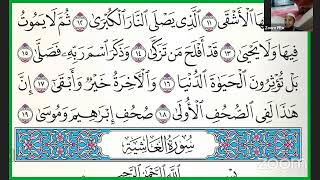 ـهَا ٱلْأَشْقَى ١١ ٱلَّذِى يَصْلَى ٱلنَّارَ ٱلْكُبْرَىٰ ١٢ ثُمَّ لَا يَمُوتُ
فِيهَا وَلَا يَحْيَىٰ ١٣ قَدْ أَفْلَحَ مَن تَزَكَّىٰ ١٤ وَذَكَرَ ٱسْمَ رَبِّهِۦ فَصَلَّىٰ ١٥
بَلْ تُؤْثِرُونَ ٱلْحَيَوٰةَ ٱلدُّنْيَا ١٦ وَٱلْـَٔاخِرَةُ خَيْرٌ وَأَبْقَىٰٓ ١٧ إِنَّ
هَٰذَا لَفِى ٱلصُّحُفِ ٱلْأُولَىٰ ١٨ صُحُفِ إِبْرَٰهِيمَ وَمُوسَىٰ ١٩
سُورَةُ الْغَاشِيَةِ
بِسْمِ ٱللَّهِ ٱلرَّحْمَٰنِ ٱلرَّحِيمِ
zoom